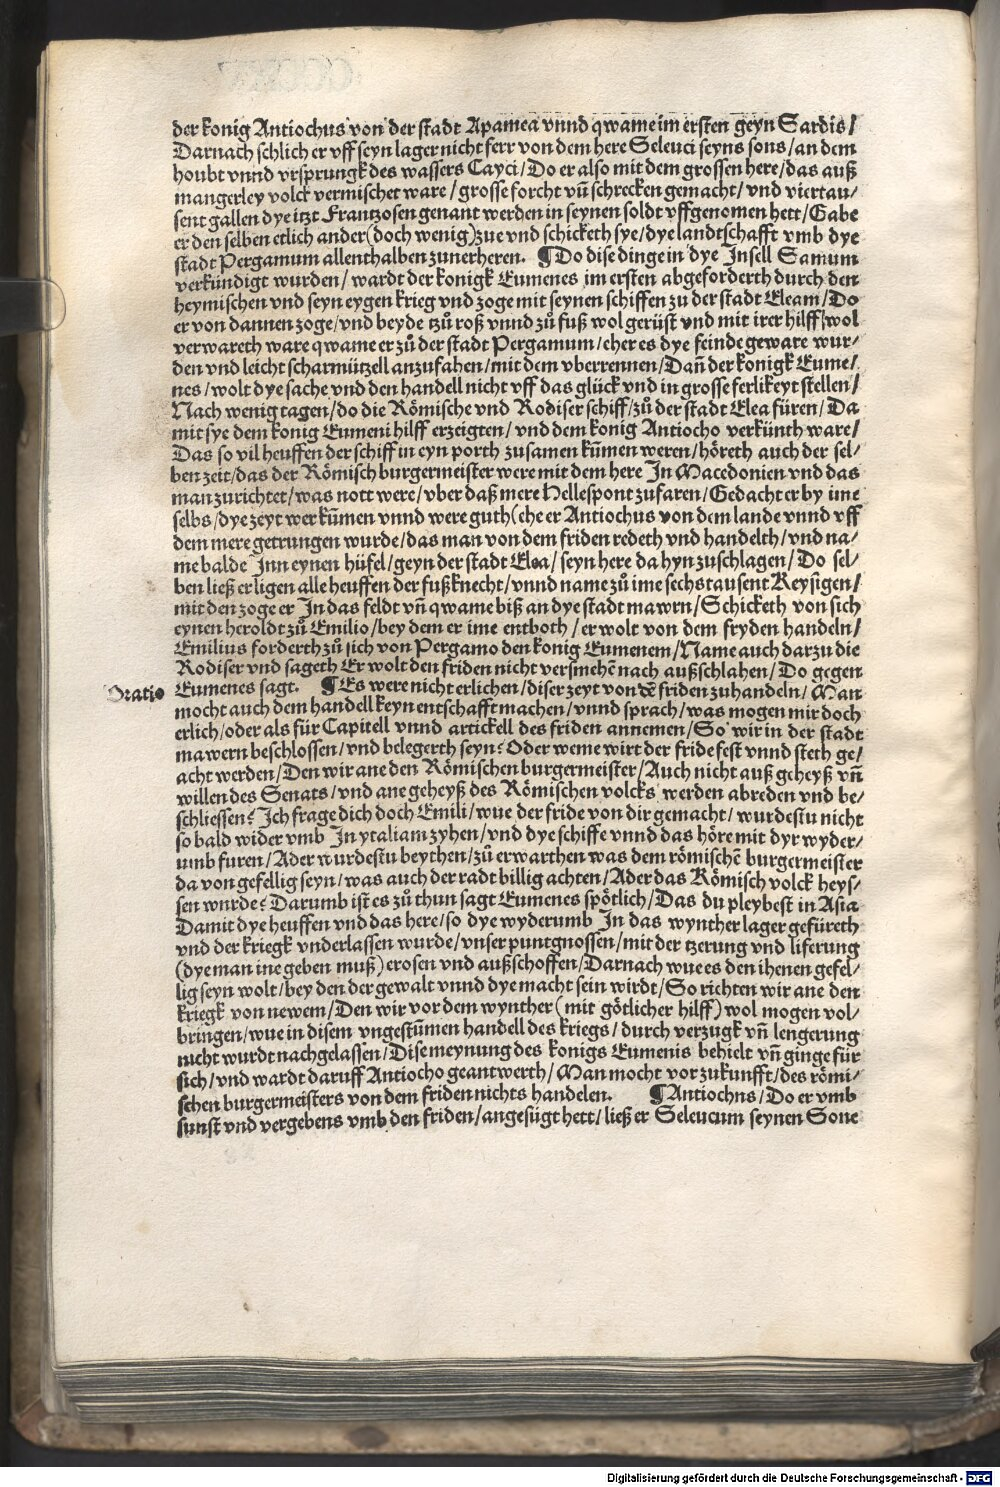 der konig Antiochus von der stadt Apamea vnnd qwame im ersten geyn Sardis/
Darnach schlich er vff seyn lager nicht ferr von dem here Seleuci seyns sons/an dem
houbt vnnd vrsprungk des wassers Cayci/Do er also mit dem grossen here/das auß
mangerley volck vermischet ware/grosse forcht vn̄ schrecken gemacht/vnd viertau/
sent gallen dye itzt Frantzosen genant werden in seynen soldt vffgenomen hett/Gabe
er den selben etlich ander(doch wenig)zue vnd schicketh sye/dye landtschafft vmb dye
stadt Pergamum allenthalben zunerheren. ¶Do dise dinge in dye Insell Samum
verkündigt wurden/wardt der konigk Eumenes im ersten abgeforderth durch den
heymischen vnd seyn eygen krieg vnd zoge mit seynen schiffen zu der stadt Eleam/Do
er von dannen zoge/vnd beyde tzů roß vnnd zů fuß wol gerüst vnd mit irer hilff/wol
verwareth ware qwame er zů der stadt Pergamum/eher es dye feinde geware wur/
den vnd leicht scharmützell anzufahen/mit dem vberrennen/Dan̄ der konigk Eume/
nes/wolt dye sache vnd den handell nicht vff das glück vnd in grosse ferlikeyt stellen/
Nach wenig tagen/do die Römische vnd Rodiser schiff/zů der stadt Elea füren/Da
mit sye dem konig Eumeni hilff erzeigten/vnd dem konig Antiocho verkünth ware/
Das so vil heuffen der schiff in eyn porth zusamen kūmen weren/höreth auch der sel/
ben zeit/das der Römisch burgermeister were mit dem here In Macedonien vnd das
man zurichtet/was nott were/vber daß mere Hellespont zufaren/Gedacht er by ime
selbs/dye zeyt wer kūmen vnnd were guth(ehe er Antiochus von dem lande vnnd vff
dem mere getrungen wurde/das man von dem friden redeth vnd handelth/vnd na/
me balde Inn eynen hüfel/geyn der stadt Elsa/seyn here da hyn zuschlagen/Do sel/
ben ließ er ligen alle heuffen der fußknecht/vnnd name zů ime sechs tausent Reysigen/
mit den zoge er In das feldt vn̄ qwame biß an dye stadt mawrn/Schicketh von sich
eynen heroldt zů Emilio/bey dem er ime entboth/er wolt von dem fryden handeln/
Emilius forderth zů sich von Pergamo den konig Eumenem/Name auch darzu die
Rodiser vnd sageth Er wolt den friden nicht versmehē nach außschlahen/Do gegen
Oratio Eumenes sagt. ¶Es were nicht erlichen/diser zeyt von dē friden zuhandeln/Man
mocht auch dem handell keyn entschafft machen/vnnd sprach/was mogen mir doch
erlich/oder als für Capitell vnnd artickell des friden annemen/So wir in der stadt
mawern beschlossen/vnd belegerth seyn? Oder weme wirt der fride fest vnnd steth ge/
acht werden/Den wir ane den Römischen burgermeister/Auch nicht auß geheyß vn̄
willen des Senats/vnd ane geheyß des Römischen volcks werden abreden vnd be/
schliessen? Ich frage dich doch Emili/wue der fride von dir gemacht/wurdestu nicht
so bald wider vmb In ytaliam zyhen/vnd dye schiffe vnnd das höre mit dyr wyder/
umb furen/Ader wurdestu beythen/zů erwarthen was dem römischē burgermeister
da von gefellig seyn/was auch der radt billig achten/Ader das Römisch volck heys/
sen wurde? Darumb ist es zů thun sagt Eumenes spötlich/Das du pleybest in Asia
Damit dye heuffen vnd das here/so dye wyderumb In das wynther lager gefüreth
vnd der kriegk vnderlassen wurde/vnser puntgnossen/mit der tzerung vnd liferung
(dye man ine geben muß)erosen vnd außschoffen/Darnach wue es den ihenen gefel/
lig seyn wolt/bey den der gewalt vnnd dye macht sein wirdt/So richten wir ane den
kriegk von newem/Den wir vor dem wynther(mit götlicher hilff)wol mogen vol/
bringen/wue in disem vngestūmen handell des kriegs/durch verzugk vn̄ lengerung
nicht wurdt nachgelassen/Dise meynung des konigs Eumenis behielt vn̄ ginge für
sich/vnd wardt daruff Antiocho geantwerth/Man mocht vor zukunfft/des römi/
schen burgermeisters von dem friden nichts handelen. ¶Antiochns/Do er vmb
sunst vnd vergebens vmb den friden/angesügt hett/ließ er Seleucum seynen Sone
Digitalisierung gefördert durch die Deutsche Forschungsgemeinschaft - DFG